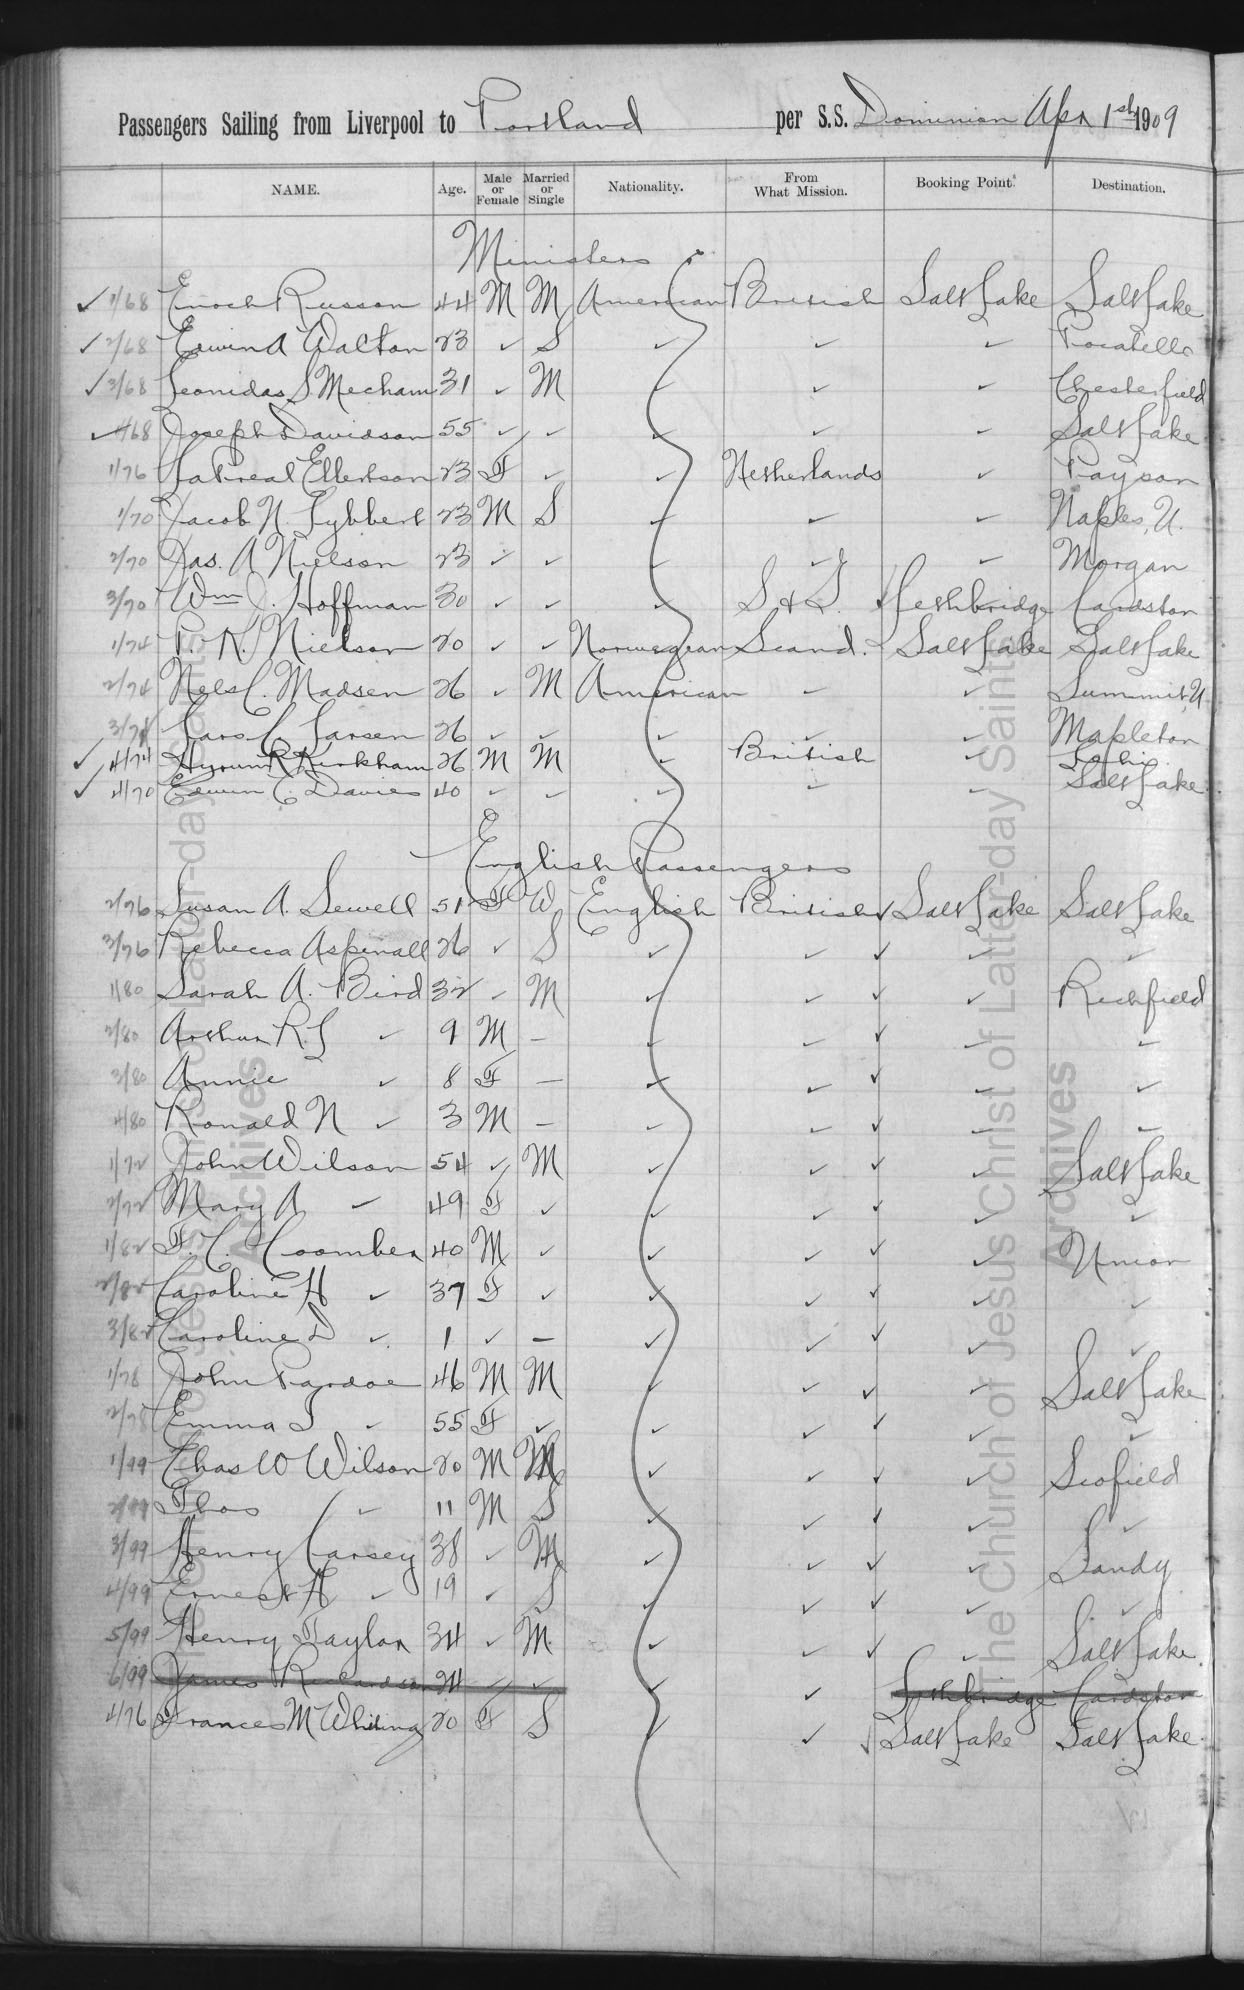 Passengers Sailing from Liverpool to Portland per S.S. Dominion Apr 1st 1909
NAME. Age. Male or Female Married or Single Nationality. From What Mission. Booking Point. Destination.
Ministers
✓ 1/68 Enoch Russon 44 M M American British Salt Lake Salt Lake
✓ 2/68 Erwin A Walton 23 ✓ S ✓ ✓ ✓ Pocatello
✓ 3/68 Leonidas S Mecham 31 ✓ M ✓ ✓ ✓ Chesterfield
✓ 4/68 Joseph Davidson 55 ✓ ✓ ✓ ✓ ✓ Salt Lake
1/76 LaPreal Ellertson 23 F ✓ ✓ Netherlands ✓ Payson
1/70 Jacob N. Lybbert 23 M S ✓ ✓ ✓ Naples, U.
2/70 Jas. A Nielson 23 ✓ ✓ ✓ ✓ ✓ Morgan
3/70 Wm J. Hoffman 30 ✓ ✓ ✓ S & G. ✓ Lethbridge Cardston
1/74 P. N. Nielson 20 ✓ ✓ Norwegian Scand. Salt Lake Salt Lake
2/74 Nels C. Madsen 26 ✓ M American ✓ ✓ Summit, U
3/74 Lars C. Larsen 26 ✓ ✓ ✓ ✓ ✓ Mapleton
✓ 4/74 Hyrum R Kirkham 26 M M ✓ British ✓ Lehi
✓ 4/70 Edwin C. Davies 40 ✓ ✓ ✓ ✓ ✓ Salt Lake
English Passengers
2/76 Susan A. Sewell 51 F W English British ✓ Salt Lake Salt Lake
3/76 Rebecca Aspinall 26 ✓ S ✓ ✓ ✓ ✓ ✓
1/80 Sarah A. Bird 32 ✓ M ✓ ✓ ✓ ✓ Richfield
2/80 Arthur R. L ✓ 9 M — ✓ ✓ ✓ ✓
3/80 Annie ✓ 8 F — ✓ ✓ ✓ ✓ ✓
4/80 Ronald N ✓ 3 M — ✓ ✓ ✓ ✓ ✓
1/72 John Wilson 54 ✓ M ✓ ✓ ✓ ✓ Salt Lake
2/72 Mary A ✓ 49 F ✓ ✓ ✓ ✓ ✓ ✓
1/82 F. C. Coomber 40 M ✓ ✓ ✓ ✓ ✓ Union
2/82 Caroline H ✓ 37 F ✓ ✓ ✓ ✓ ✓ ✓
3/82 Caroline D ✓ 1 ✓ — ✓ ✓ ✓ ✓ ✓
1/78 John Pardoe 46 M M ✓ ✓ ✓ ✓ Salt Lake
2/78 Emma S ✓ 55 F ✓ ✓ ✓ ✓ ✓ ✓
1/99 Chas W Wilson 20 M M ✓ ✓ ✓ ✓ Scofield
2/99 Thos ✓ 11 M S ✓ ✓ ✓ ✓ ✓
3/99 Henry Carsey 38 ✓ M ✓ ✓ ✓ ✓ Sandy
4/99 Ernest H ✓ 19 ✓ S ✓ ✓ ✓ ✓ ✓
5/99 Henry Taylor 34 ✓ M. ✓ ✓ ✓ ✓ Salt Lake.
6/99 James Richardson 24 ✓ ✓ ✓ ✓ Lethbridge Cardston
4/76 Frances M Whiting 20 F S ✓ ✓ ✓ Salt Lake Salt Lake.
The Church of Jesus Christ of Latter-day Saints
Archives
The Church of Jesus Christ of Latter-day Saints
Archives